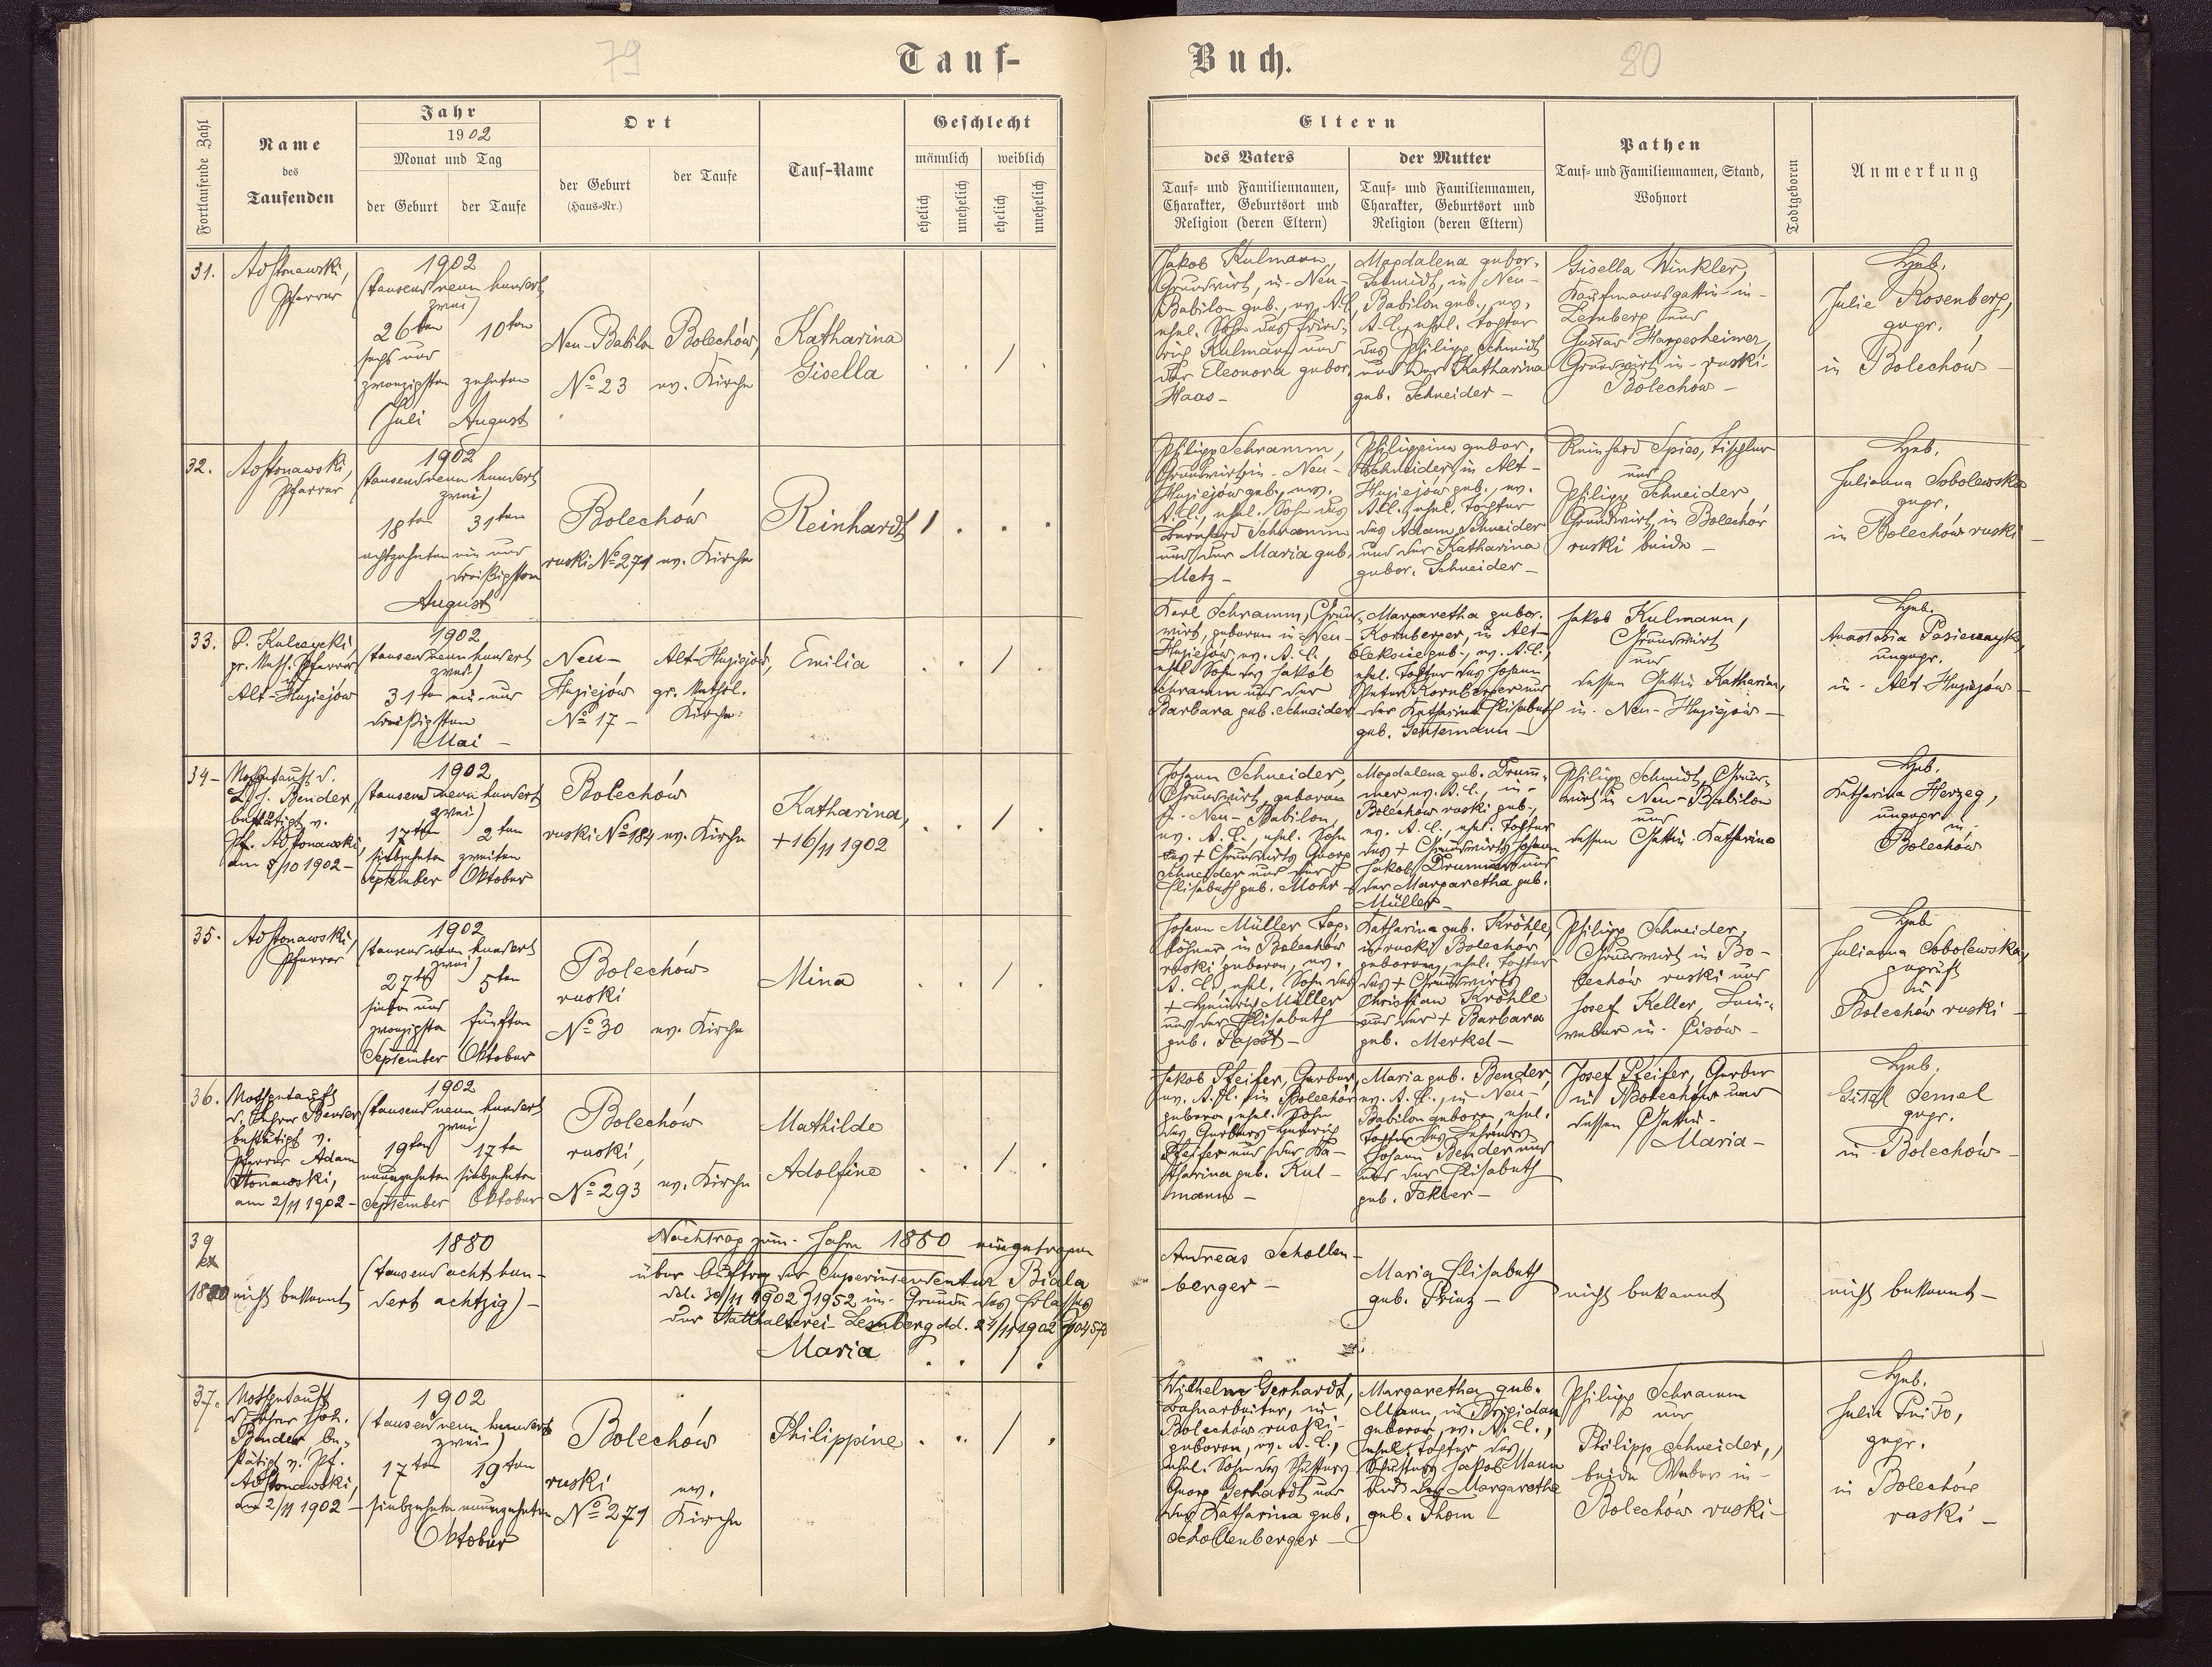 79
Tauf-
Fortlaufende Zahl
Name
des
Taufenden
Jahr
1902
Monat und Tag
der Geburt
der Taufe
Ort
der Geburt
(Haus-Nr.)
der Taufe
Tauf-Name
Geschlecht
männlich
weiblich
ehelich
unehelich
ehelich
unehelich
31.
Pfarrer
1902
(tausend neun hundert
zwei)
26ten
10ten
sechs und
zwanzigsten
zehnten
Juli
August
Neu-Babilon
No 23
Bolechów,
ev. Kirche
Katharina
Gisella
. . / .
32.
Pfarrer
1902
(tausend neun hundert
zwei)
18ten
31ten
achtzehnten
ein und
dreißigsten
August
Bolechów
ruski No 271
ev. Kirche
Reinhardt
/ . . .
33.
P. Kulczycki,
gr. kath. Pfarrer
in
Alt-Hujiejów
1902
(tausend neun hundert
zwei)
31ten ein und
dreißigsten
Mai -
Neu-
Hujiejów
No 17 -
Alt-Hujiejów,
gr. kathol.
Kirche
Emilia
. . / .
34-
Nothgetauft d.
L. J. Bender,
bestätigt v.
am 8/10 1902 -
1902
(tausend neun hundert
zwei)
17ten
2ten
siebzehnten
zweiten
September
Oktober
Bolechów
ruski No 184
ev. Kirche
Katharina,
+ 16/11 1902
. . / .
35.
Pfarrer
1902
(tausend neun hundert
zwei)
27ten
5ten
sieben und
zwanzigsten
fünften
September
Oktober
Bolechów
ruski
No 30
ev. Kirche
Mina
. . / .
36.
Nothgetauft
d. Lehrer Bender
bestätigt v.
Pfarrer Adam
Stonawski,
am 2/11 1902 -
1902
(tausend neun hundert
zwei)
19ten
17ten
neunzehnten
siebzehnten
September
Oktober
Bolechów
ruski,
No 293
ev. Kirche
Mathilde
Adolfine
. . / .
39
ex
1880
nicht bekannt
1880
(tausend acht hun-
dert achtzig) -
Nachtrag zum Jahre 1880 eingetragen
über Auftrag der Superintendentur Biala
im Grunde des Erlasses
der Statthalterei Lemberg
Maria
. . / .
37.
Nothgetauft
d. Lehrer Joh.
Bender be-
stätigt v. Pf.
Ad Stonawski,
am 2/11 1902 -
1902
(tausend neun hundert
zwei)
17ten
19ten
siebzehnten
neunzehnten
Oktober
Bolechów
ruski
No 271
ev.
Kirche
Philippine
. . / .
Buch.
80
Eltern
des Vaters
Tauf- und Familiennamen,
Charakter, Geburtsort und
Religion (deren Eltern)
der Mutter
Tauf- und Familiennamen,
Charakter, Geburtsort und
Religion (deren Eltern)
Pathen
Tauf- und Familiennamen, Stand,
Wohnort
Todtgeboren
Anmerkung
Jakob Kulmann,
Grundwirt, in Neu-
Babilon geb., ev. A.C.,
ehel. Sohn des Fried-
rich Kulmann und
der Eleonora gebor.
Haas -
Magdalena gebor.
Schmidt, in Neu-
Babilon geb., ev.
A.C., ehel. Tochter
des Philipp Schmidt
und der Katharina
geb. Schneider -
Gisella Winkler,
Kaufmannsgattin in
Lemberg und
Gustav Harpesheimer,
Grundwirt in ruski-
Bolechow -
Heb.
Julie Rosenberg,
gepr.
in Bolechów -
Philipp Schramm,
Grundwirt, in Neu-
Hujiejów geb., ev.
A.C., ehel. Sohn des
Bernhard Schramm
und der Maria geb.
Metz -
Philippine gebor.
Schneider, in Alt-
Hujiejów geb., ev.
A.C., ehel. Tochter
des Adam Schneider
und der Katharina
gebor. Schneider -
Reinhard Spies, Tischler
und
Philipp Schneider,
Grundwirt, in Bolechów
ruski beide -
Heb.
Julianna Sobolewska
gepr.
in Bolechów ruski -
Karl Schramm, Grund-
wirt, geboren in Neu-
Hujiejów, ev. A.C.,
ehel. Sohn des Jakob
Schramm und der
Barbara geb. Schneider
Margaretha gebor.
Kornberger, in Alt-
Oleksice geb., ev. A.C.,
ehel. Tochter des Johann
Peter Kornberger und
der Katharina Elisabeth
Jakob Kulmann,
Grundwirt
und
dessen Gattin Katharina,
in Neu-Hujiejów -
Heb.
ungepr.
in Alt Hujiejów -
Johann Schneider,
Grundwirt, geboren
in Neu-Babilon,
ev. A.C., ehel. Sohn
des + Grundwirts Georg
Schneider und der
Elisabeth geb. Mohr -
Magdalena geb. Drum-
mer ev. A.C., in
Bolechów ruski geb.,
ev. A.C., ehel. Tochter
des + Grundwirts Johann
Jakob Drummer und
der Margaretha geb.
Müller -
Philipp Schmidt, Grund-
wirt in Neu-Babilon
und
dessen Gattin Katharina
Heb.
Katharina Herzeg,
ungepr.
in
Bolechów
Johann Müller Tag-
löhner in Bolechów
ruski geboren, ev.
A.C., ehel. Sohn des
+ Heinrich Müller
und der Elisabeth
geb. Papst -
Katharina geb. Kröhle,
in ruski Bolechów
geboren, ehel. Tochter
des + Grundwirts
Christian Kröhle
und der + Barbara
geb. Merkel -
Philipp Schneider,
Grundwirt in Bo-
lechów ruski und
Josef Keller, Lein-
weber in Cisów -
Heb.
Julianna Sobolewska,
geprüft
in
Bolechów ruski -
Jakob Pfeifer, Gerber,
ev. A.C. in Bolechów
geboren, ehel. Sohn
des Gerbers Heinrich
Pfeifer und der Ka-
tharina geb. Kul-
mann -
Maria geb. Bender,
ev. A.C., in Neu-
Babilon geboren, ehel.
Tochter des Lehrers
Johann Bender und
der Elisabeth
Josef Pfeifer, Gerber
in Bolechów und
dessen Gattin
Maria -
Heb.
Gisel Semel
gepr.
in Bolechów -
Andreas Schollen-
berger -
Maria Elisabeth
geb. Prinz -
nicht bekannt
nicht bekannt -
Wilhelm Gerhardt,
Bahnarbeiter, in
Bolechów ruski
geboren, ev. A.C.,
ehel. Sohn des Schusters
Georg Gerhardt und
der Katharina geb.
Schollenberger -
Margaretha geb.
Mann, in Brigidau
geboren, ev. A.C.,
ehel. Tochter des
Schusters Jakob Mann
und der Margaretha
geb. Thom -
Philipp Schramm
und
Philipp Schneider,
beide Weber in
Bolechów ruski -
Heb.
gepr.
in Bolechów
ruski -